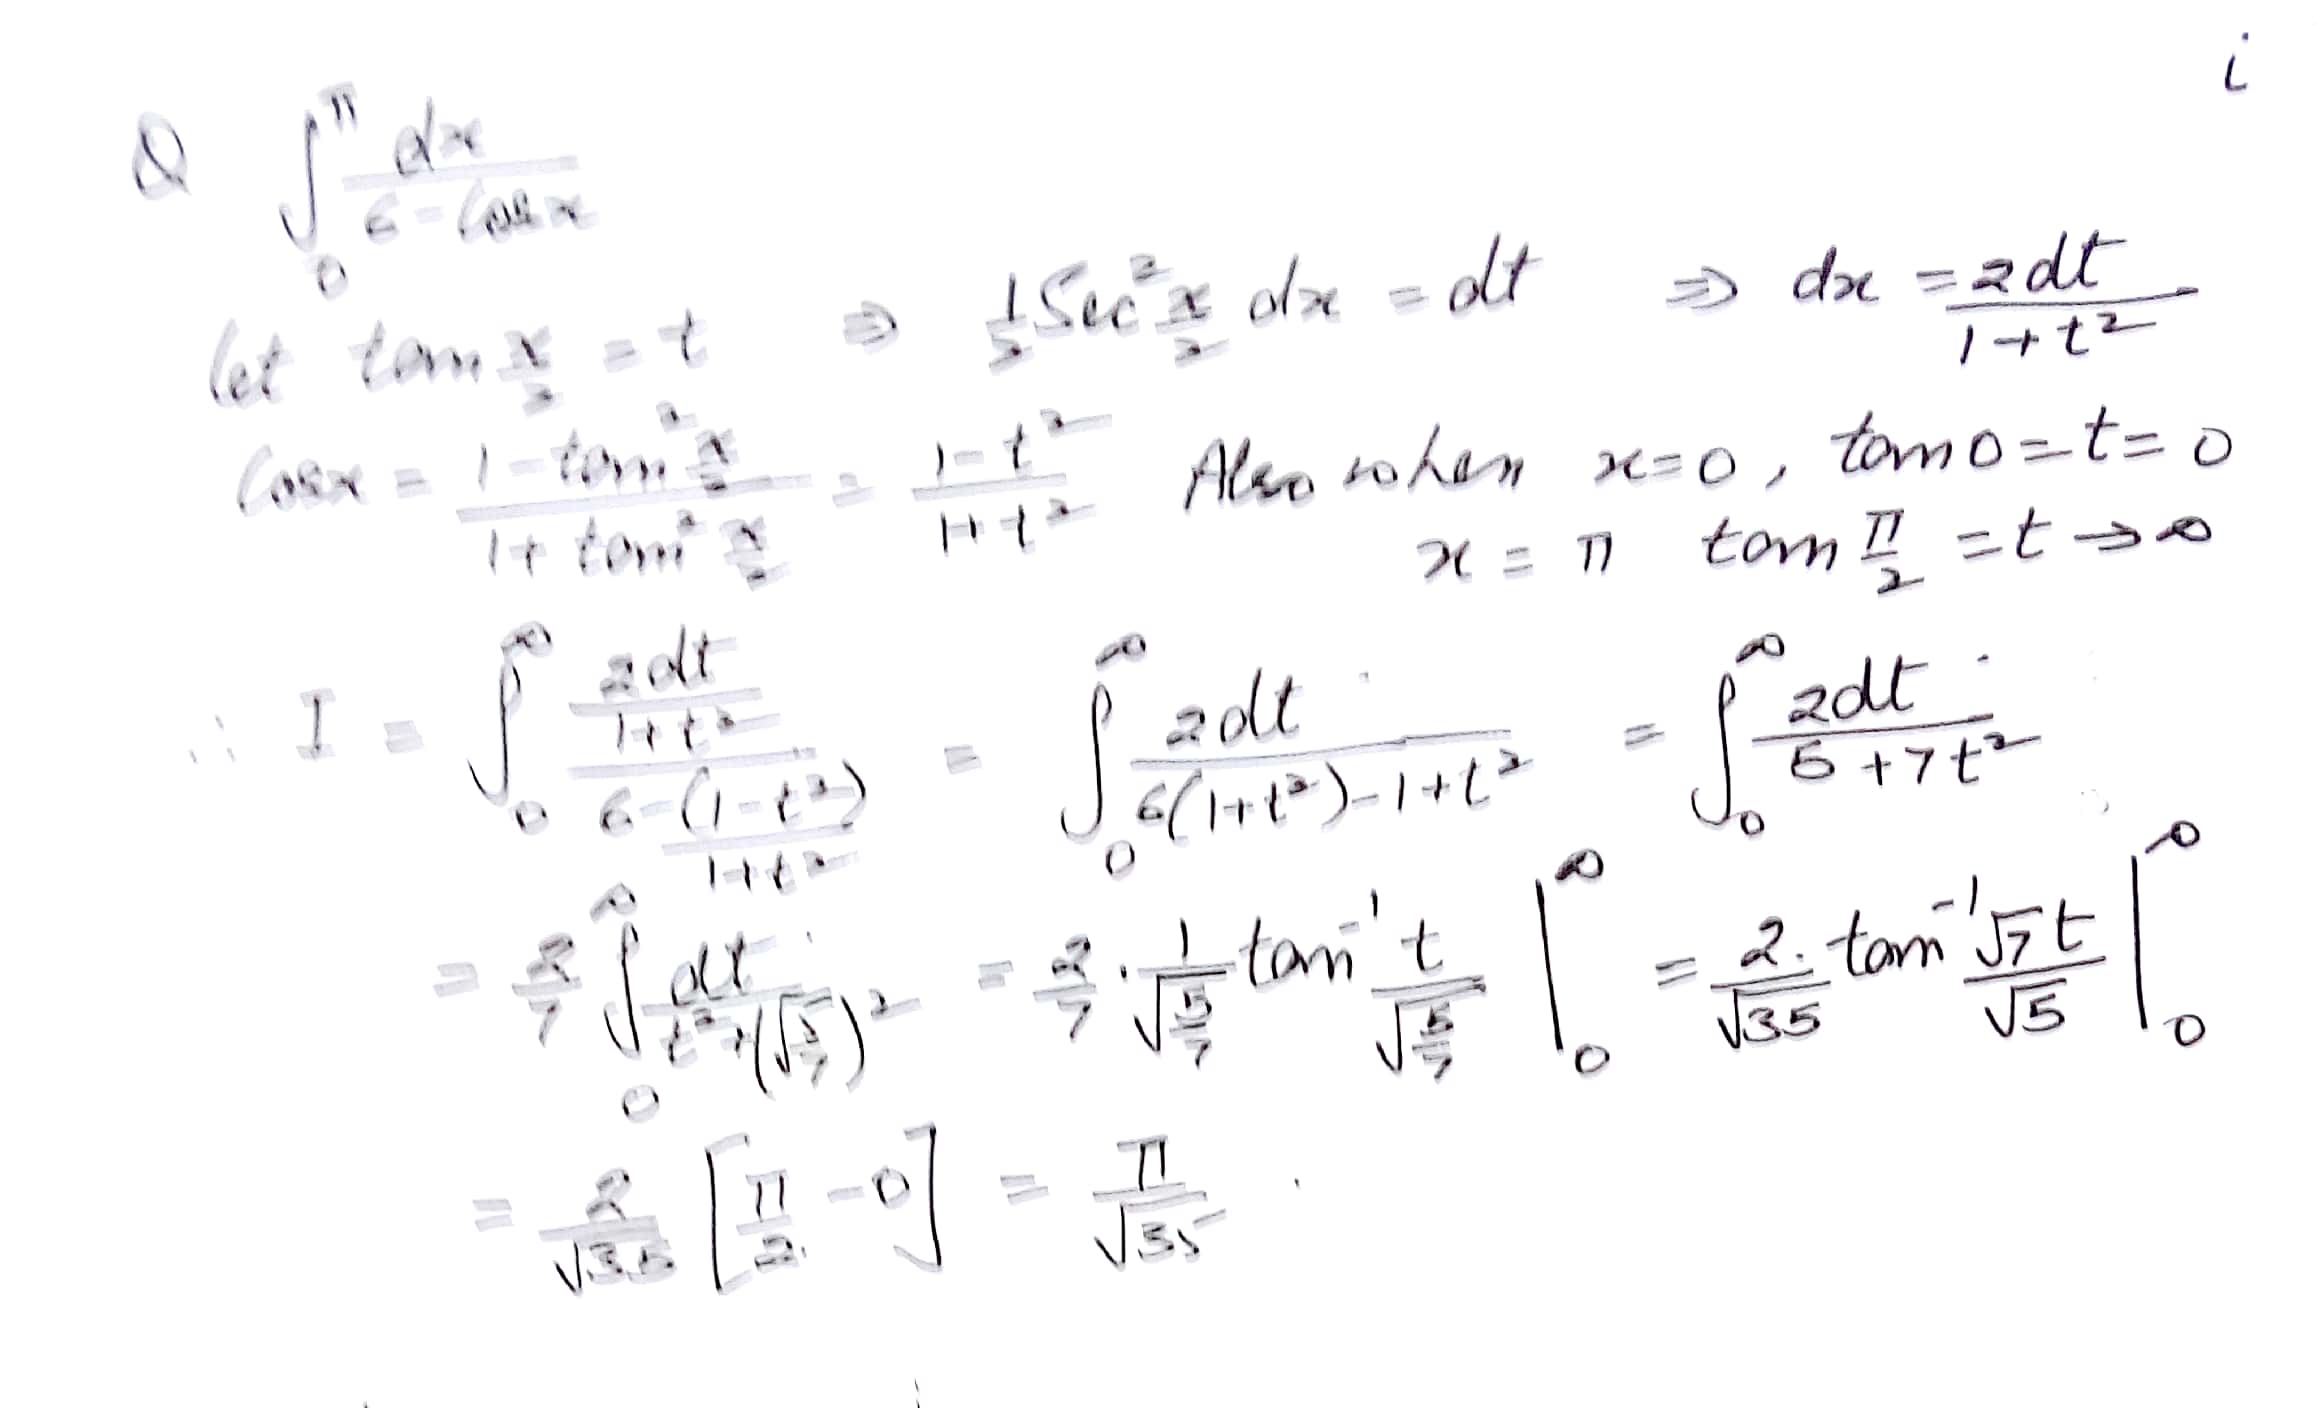 i
Q ∫₀^π dx / (6 - Cosx)
let tan x/2 = t ⇒ 1/2 Sec² x/2 dx = dt ⇒ dx = 2dt / (1+t²)
Cosx = (1 - tan² x/2) / (1 + tan² x/2) = (1-t²) / (1+t²) Also when x=0, tan0=t=0
x = π tan π/2 = t → ∞
∴ I = ∫₀^∞ (2dt / (1+t²)) / (6 - (1-t²) / (1+t²)) = ∫₀^∞ 2dt / (6(1+t²)-1+t²) = ∫₀^∞ 2dt / (5+7t²)
= 2/7 ∫₀^∞ dt / (t²+(√(5/7))²) = 2/7 . 1/√(5/7) tan⁻¹ t/√(5/7) |₀^∞ = 2/√35 . tan⁻¹ √7t/√5 |₀^∞
= 2/√35 [π/2 - 0] = π/√35 .